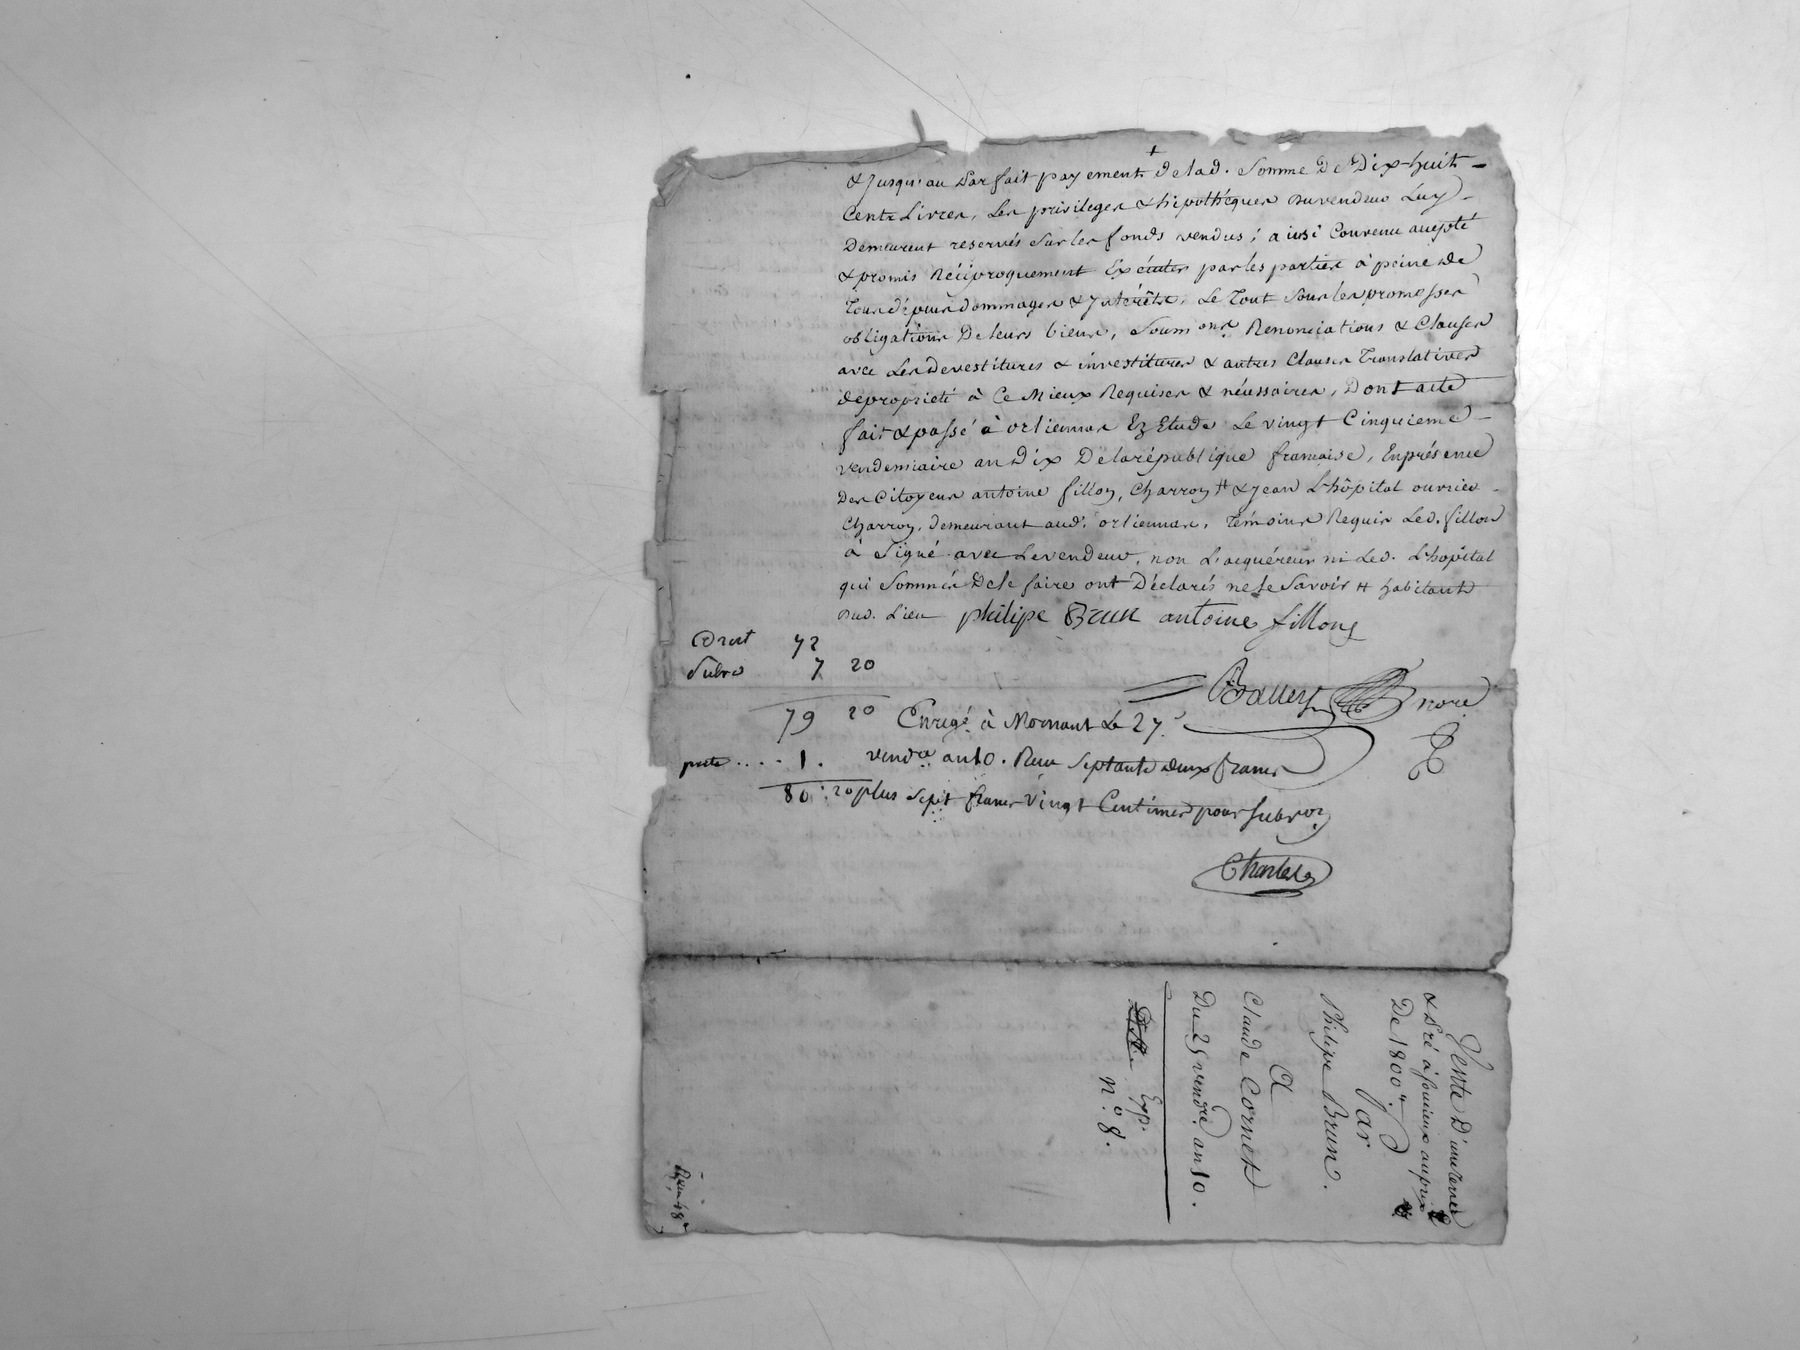 & jusqu'au parfait payement + de lad. somme De Dix-huit -
Cents Livres, Les privileges & hipothéques du vendeur Luy -
Demeurent reservés sur les fonds vendus; ainsi Convenu accepté
& promis Réciproquement Exécuter par les parties à peine de
Tous dépens dommages & jnterêts. Le Tout sous les promesses
obligations De leurs biens, soumons. Renonciations & Clauses
avec Les devestitures & investitures & autres Clauses Translatives
de proprieté à Ce Mieux Requises & nécessaires, Dont acte
fait & passé à orlienas Ez Etude Le vingt Cinquieme -
vendemiaire an Dix De la république francaise, En présence
Des Citoyens antoine fillon, Charron # & jean L'hôpital ouvrier -
Charron, demeurant aud. orlienas, Témoins Requis Led. fillon
à signé avec Le vendeur, non L'acquéreur ni Led. L'hopital
qui sommés De le faire ont Déclarés ne le Savoir # habitants
dud. Lieu philipe Brun antoine fillong
Droit 72
Subv 7 20
nore
79 20 Enregé. à Mornant Le 27
vendre an 10. Reçu septante deux francs
1.
80: 20 plus sept francs vingt Centimes pour subvon
Charles
Vente D'une terre
& Pré à au prix
De 1800#
Par
Philipe Brun.
A
Claude Cornet
Du 25 vendre. an 10.
Exp.
N.o 8.